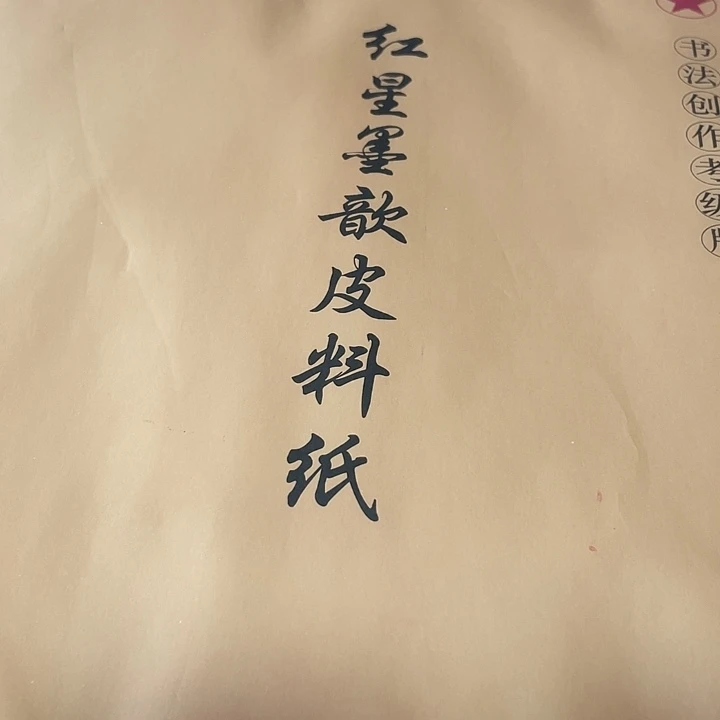 书法创作考级
红星墨歆皮料纸